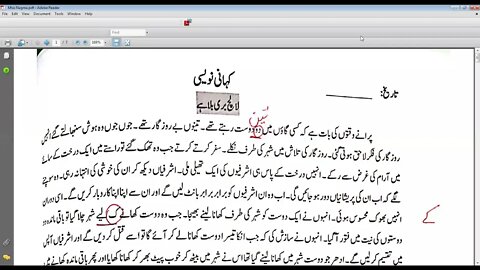 Miss Nagma.pdf - Adobe Reader
File Edit View Window Help
کہانی نویسی
تاریخ:
لالچ بری بلا ہے
تین
پرانے وقتوں کی بات ہے کہ کسی گاؤں میں دو دوست رہتے تھے۔ تینوں بے روزگار تھے۔ جوں جوں وہ ہوش سنبھالتے گئے انہیں
روزگار کی فکر لاحق ہوتی گئی۔ روزگار کی تلاش میں شہر کی طرف نکلے۔ سفر کرتے کرتے جب وہ تھک گئے تو راستے میں ایک درخت کے سائے
میں آرام کی غرض سے رکے۔ انہیں درخت کے پاس ہی اشرفیوں کی ایک تھیلی ملی۔ اشرفیاں دیکھ کر ان کی خوشی کی انتہا نہ رہی۔
لگے کہ اب ان کی پریشانیاں دور ہو جائیں گی۔ اب وہ ان اشرفیوں کو برابر برابر بانٹ لیں گے اور ان سے اپنا اپنا کاروبار کریں گے۔ اسی دوران
انہیں بھوک محسوس ہوئی۔ انہوں نے ایک دوست کو شہر کی طرف کھانا لینے بھیجا۔ جب وہ دوست کھانے ک لیے شہر چلا گیا تو باقی ماندہ
کے
دوستوں کی نیت میں فتور آ گیا۔ انہوں نے سازش کی کہ جب انکا تیسرا دوست کھانا لے کر آئے گا تو اسے قتل کر دیں گے اور اشرفیاں آپس
میں تقسیم کر لیں گے۔ ادھر جو دوست کھانا لینے گیا تھا اس نے شہر میں بیٹھ کر خوب پیٹ بھر کر کھانا کھایا اور پھر باقی ماندہ کھانے میں